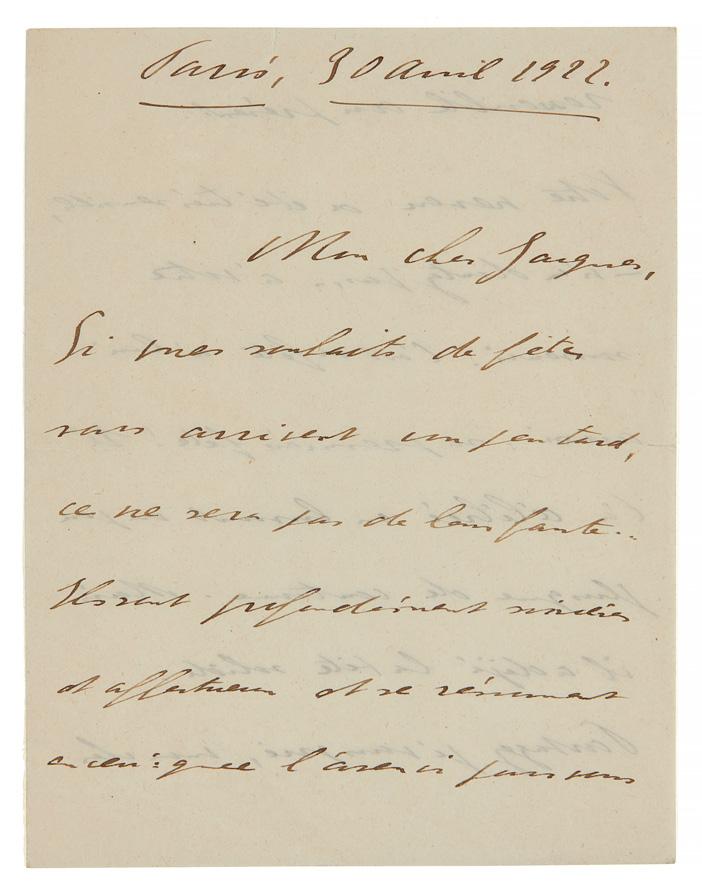 Paris, 30 avril 1922.
Mon cher Jacques,
Si mes souhaits de fête
vous arrivent un peu tard,
ce ne sera pas de leur faute..
Ils sont profondément sincères
et affectueux et se résument
en ceci: que l'avenir pour vous